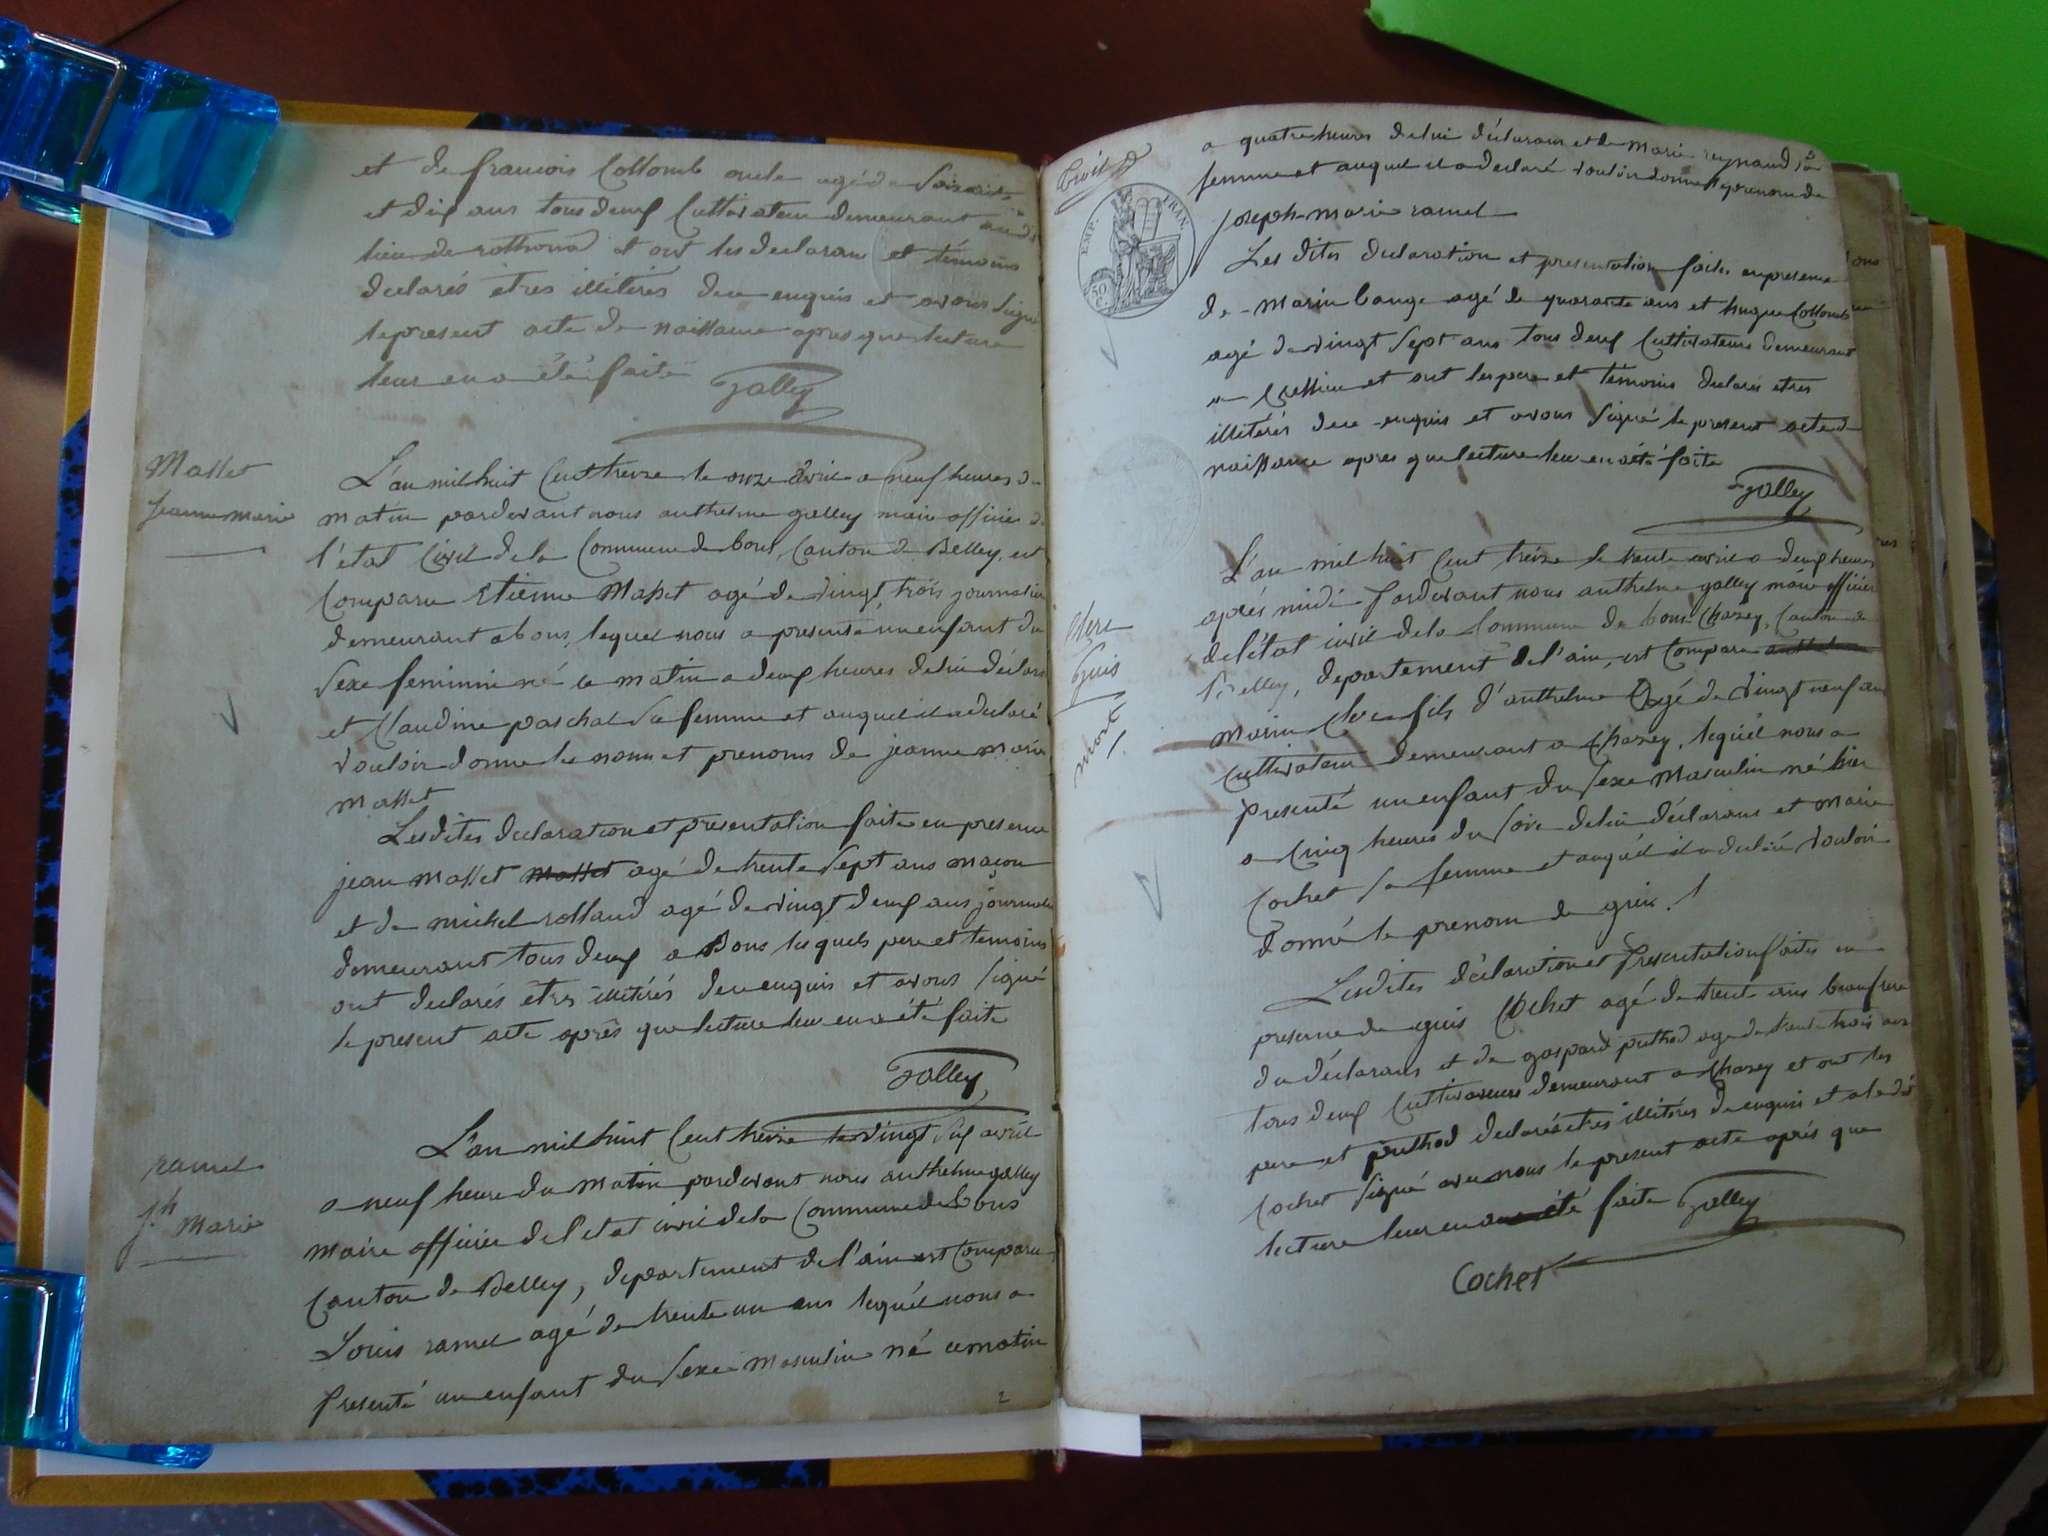 et de francois Collomb oncle agé de Soixante
et dix ans tous deux Cultivateur demeurant au dit
lieu de rothonod et ont les declarans et témoins
declarés etres illitérés de ce enquis et avons Signé
le present acte de naissance apres que lecture
leur en a été faite
Galley
Masset
jeanne marie
L'an mil huit Cent treize le onze avril a neuf heures du
matin pardevant nous anthelme galley maire officier de
l'état Civil de la Commune de bons, Canton de Belley, est
Comparu Etienne Masset agé de vingt trois journalier
demeurant a bons, lequel nous a presenté un enfant du
Sexe feminin né ce matin a deux heures de lui déclarant
et Claudine paschal Sa femme et auquel il a declaré
vouloir donner les noms et prenoms de jeanne marie
masset
Lesdites declaration et presentation faite en presence
jean masset masset agé de trente Sept ans maçon
et de michel rolland agé de vingt deux ans journalier
demeurant tous deux a Bons lesquels pere et temoins
ont declarés etres illitérés de ce enquis et avons Signé
le present acte après que lecture leur en a été faite
Galley
ramel
j.h marie
L'an mil huit Cent treize le vingt Six avril
a neuf heure du matin pardevant nous anthelme galley
maire officier de l'etat civil de la Commune de bons
Canton de Belley, departement de l'ain est Comparu
Louis ramel agé de trente un ans lequel nous a
presenté un enfant du Sexe masculin né ce matin
2
EMP. FRAN.
50 C.
a quatre heures de lui déclarant et de marie reynaud Sa
femme et auquel il a declaré vouloir donner le prenom de
joseph-marie ramel
Les dites declaration et presentation faites en presence
de marin Cauge agé de quarante ans et hugue Collomb
agé de vingt Sept ans tous deux Cultivateurs demeurant
a Cressieu et ont les pere et témoins declarés etres
illitérés de ce enquis et avons Signé le present acte de
naissance apres que lecture leur en a été faite
Galley
Clerc
guis
mort
L'an mil huit Cent treize le trente avril a deux heures
après midi pardevant nous anthelme galley maire officier
de l'état civil de la Commune de bons Chazey, Canton de
Belley, departement de l'ain, est Comparu
marin Clerc fils d'anthelme agé de vingt neuf ans
Cultivateur demeurant a Chazey, lequel nous a
presenté un enfant du Sexe Masculin né hier
a Cinq heures du Soir de lui déclarant et marie
Cochet Sa femme et auquel il a declaré vouloir
donné le prenom de guis.
Lesdites déclaration et presentation faites en
presence de guis Cochet agé de trente ans beaufrere
du déclarans et de gaspard puthod agé de trente trois ans
tous deux Cultivateurs demeurant a Chazey et ont les
pere et puthod declarés etres illitérés de ce enquis et a ledit
Cochet Signé avec nous le present acte après que
lecture leur en a été faite Galley
Cochet